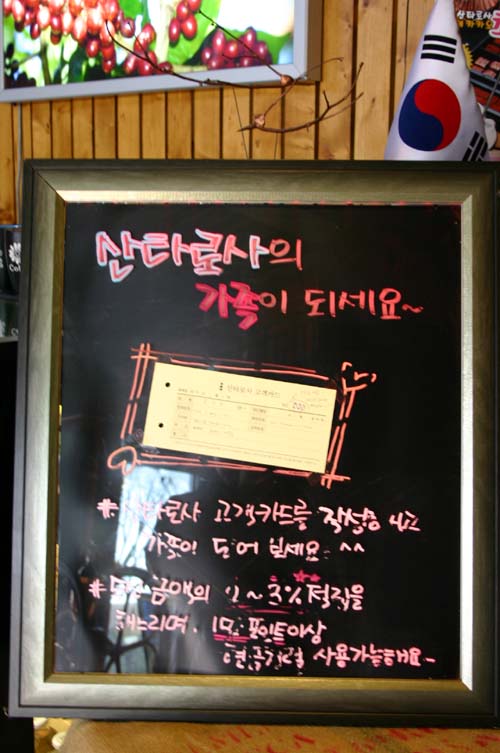 산타로사
산타로사의
가족이 되세요~
산타로사 고객카드
000
# 산타로사 고객카드를 작성하시고
가족이 되어 보세요 ^^
# 모든 금액의 2~3% 적립을
해드리며, 1만 포인트이상
현금처럼 사용가능해요~